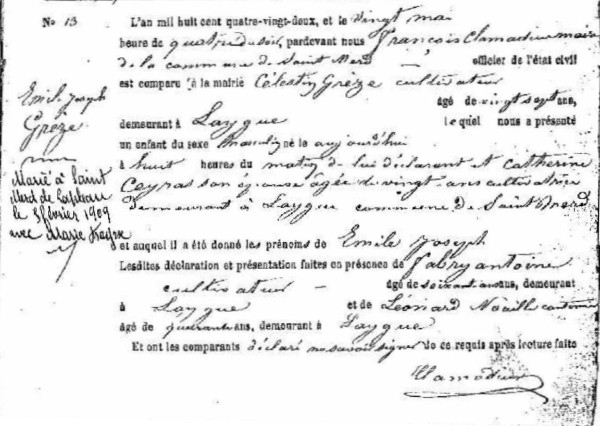 No 13
L'an mil huit cent quatre-vingt-deux, et le vingt mai
heure de quatre du soir, pardevant nous François Clamadieu maire
de la commune de Saint Merd officier de l'état civil
est comparu à la mairie Célestin Grèze cultivateur
âgé de vingt sept ans,
demeurant à Laygue lequel nous a présenté
un enfant du sexe masculin né le aujourd'hui
à huit heures du matin de lui déclarant et Catherine
Ceyras son épouse agée de vingt ans cultivatrice
demeurant à Laygue commune de Saint Merd
et auquel il a été donné les prénoms de Emile Joseph
Lesdites déclaration et présentation faites en présence de Fabry antoine
cultivateur âgé de soixante ans, demeurant
à Laygue et de Léonard Noaille
âgé de quarante ans, demeurant à Laygue
Et ont les comparants déclaré ne savoir signer de ce requis après lecture faite
Clamadieu
Emile Joseph
Grèze
Marié à Saint
Merd de Lapleau
le 3 février 1909
avec Marie